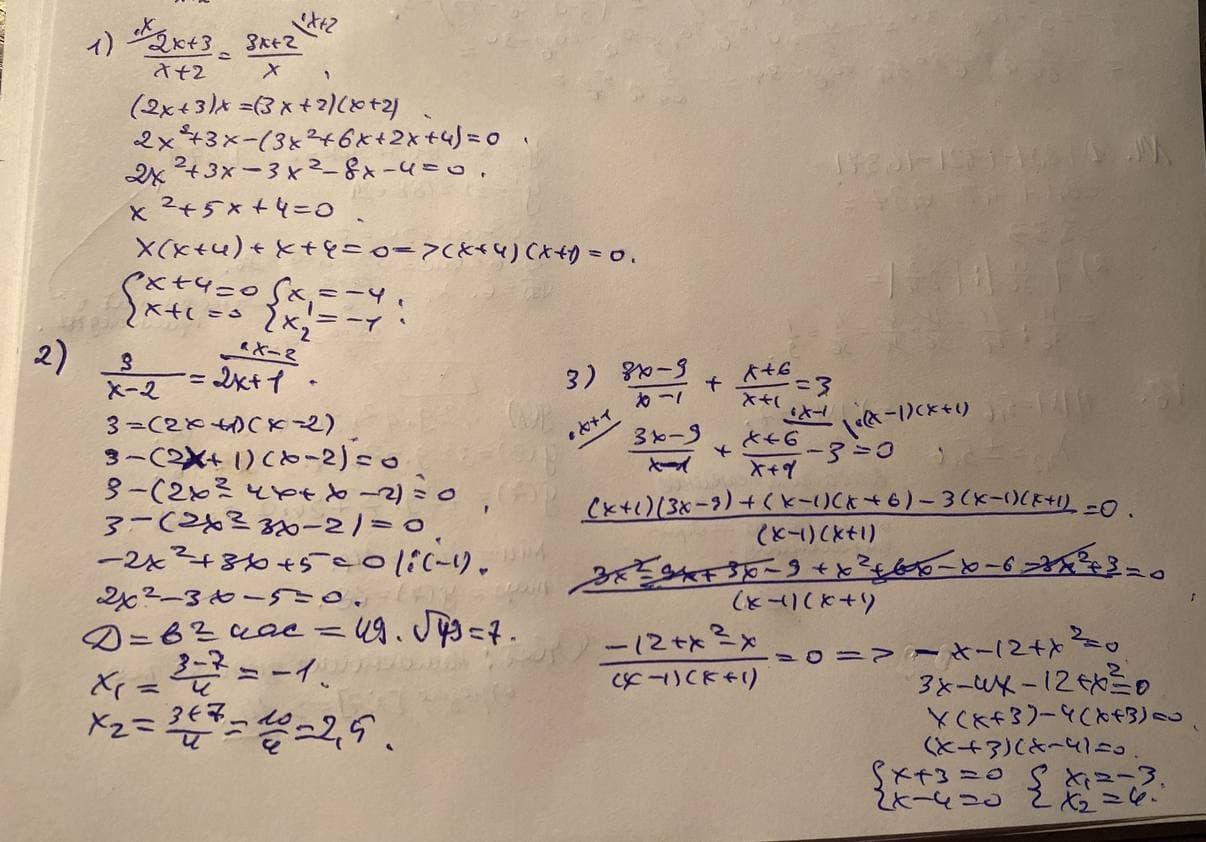 1) (2x+3)/(x+2) ·x = (3x+2)/x ·x+2
(2x+3)x=(3x+2)(x+2)
2x²+3x-(3x²+6x+2x+4)=0
2x²+3x-3x²-8x-4=0.
x²+5x+4=0.
x(x+4)+x+4=0=>(x+4)(x+1)=0.
{x+4=0 {x₁=-4;
{x+1=0 {x₂=-1;
2) 3/(x-2) = 2x+1 ·x-2
3=(2x+1)(x-2)
3-(2x+1)(x-2)=0
3-(2x²-4x+x-2)=0
3-(2x²-3x-2)=0
-2x²+3x+5=0 |:(-1).
2x²-3x-5=0.
D=b²-4ac=49. √49=7.
x₁=(3-7)/4=-1.
x₂=(3+7)/4=10/4=2,5.
3) (3x-9)/(x-1) + (x+6)/(x+1) = 3
·x+1 (3x-9)/(x-1) + (x+6)/(x+1) ·x-1 - 3 ·(x-1)(x+1) = 0
((x+1)(3x-9)+(x-1)(x+6)-3(x-1)(x+1))/((x-1)(x+1)) = 0.
(3x²-9x+3x-9+x²+6x-x-6-3x²+3)/((x-1)(x+1)) = 0
(-12+x²-x)/((x-1)(x+1)) = 0 => -x-12+x²=0
3x-4x-12+x²=0
x(x+3)-4(x+3)=0.
(x+3)(x-4)=0.
{x+3=0 {x₁=-3.
{x-4=0 {x₂=4.